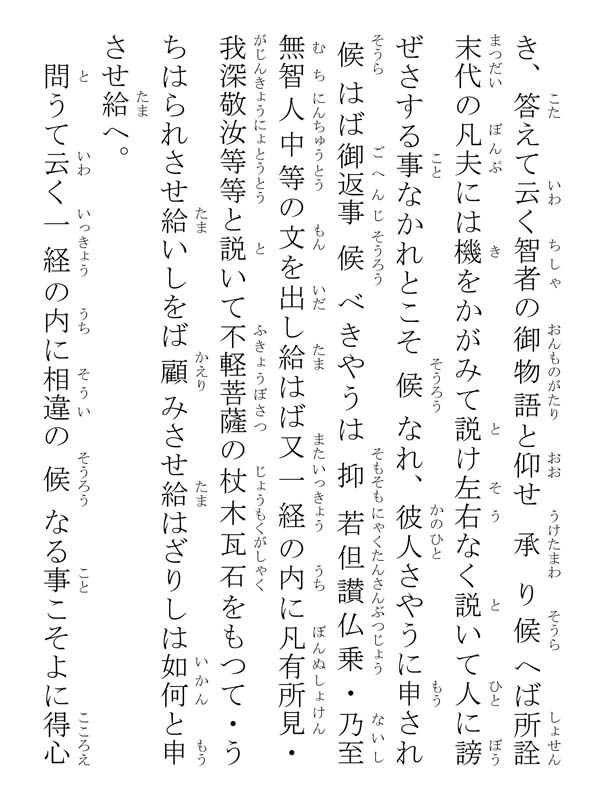 き、答えて云く智者の御物語と仰せ承り候へば所詮
末代の凡夫には機をかがみて説け左右なく説いて人に謗
ぜさする事なかれとこそ候なれ、彼人さやうに申され
候はば御返事候べきやうは抑若但讃仏乗・乃至
無智人中等の文を出し給はば又一経の内に凡有所見・
我深敬汝等等と説いて不軽菩薩の杖木瓦石をもつて・う
ちはられさせ給いしをば顧みさせ給はざりしは如何と申
させ給へ。
問うて云く一経の内に相違の候なる事こそよに得心